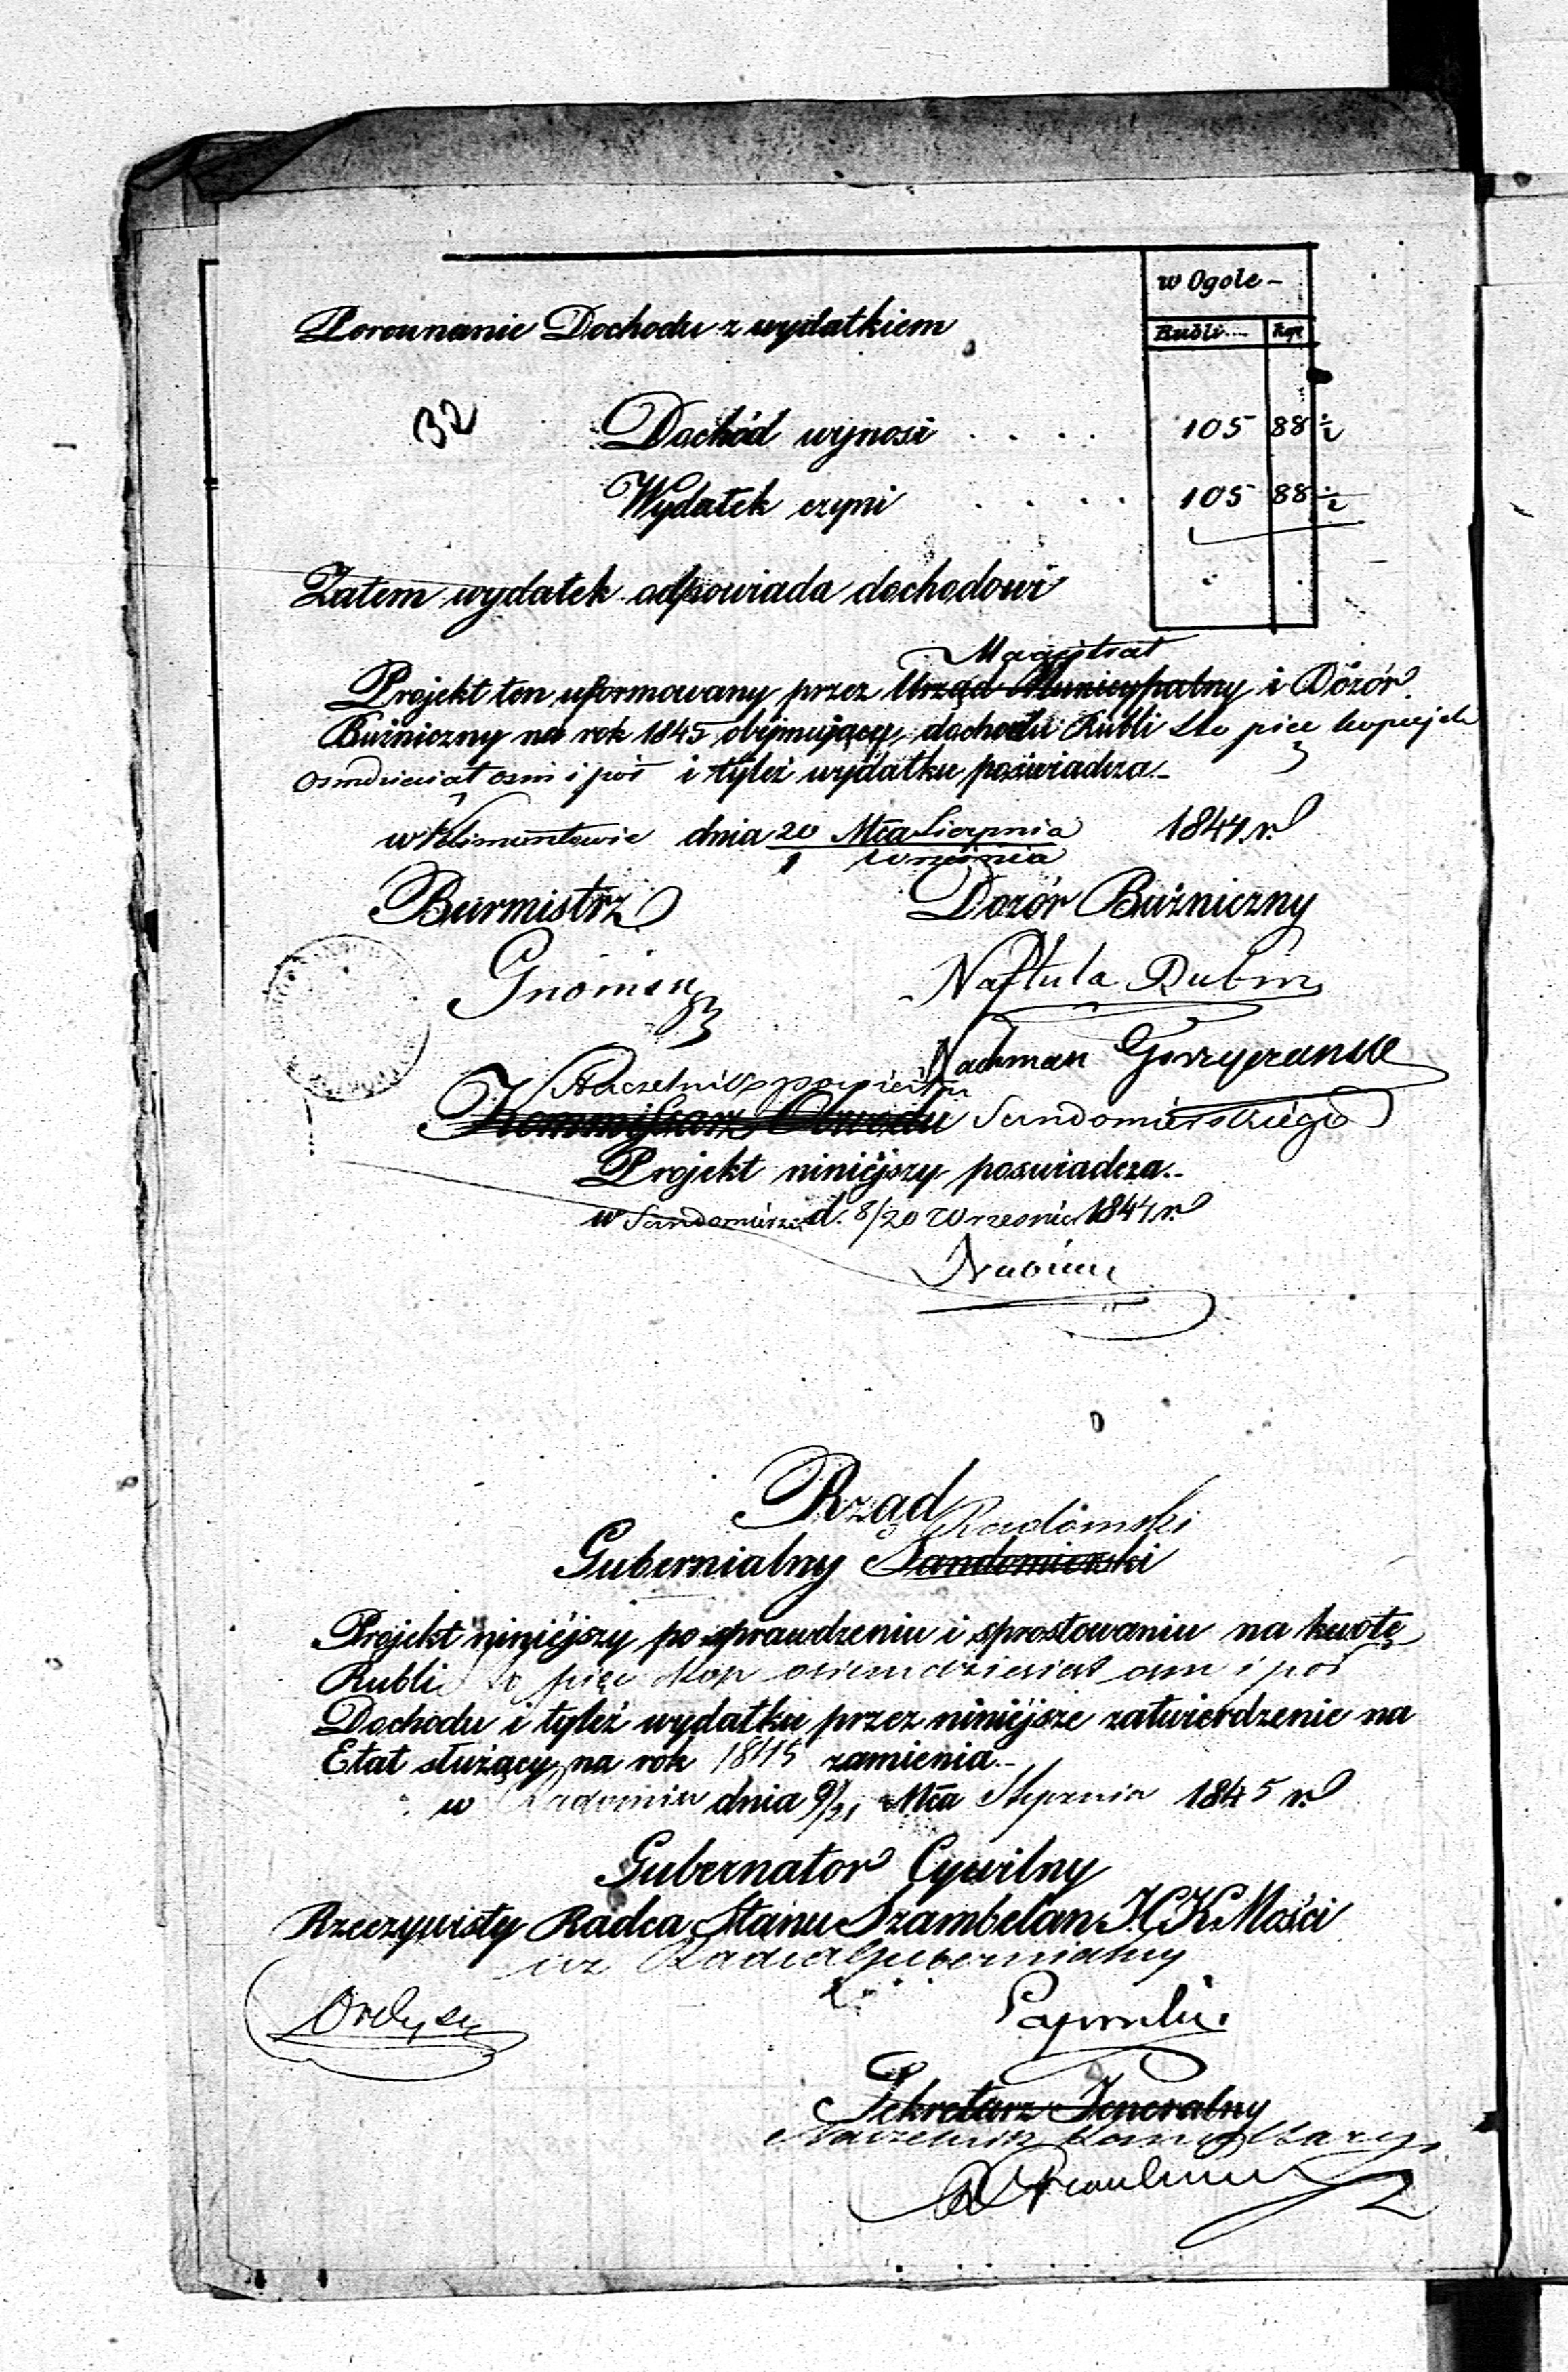 w Ogole -
Porownanie Dochodu z wydatkiem
Rubli.... kop
32
Dochód wynosi . . . . 105 88 ½
Wydatek czyni . . . . 105 88 ½
Zatem wydatek odpowiada dochodowi
Magistrat
Projekt ten uformowany przez Urząd Municypalny i Dozór
Bużniczny na rok 1845 obejmujący dochodu Rubli sto pięć kopiejek
osmdziesiąt osm i pół i tyleż wydatku poświadcza.-
w Klimontowie dnia 20 Mca Sierpnia 1844 r.
1 Września
Burmistrz Dozór Bużniczny
Naftula Rubin
Nachman
Naczelnik powiatu
Kommissarz Obwodu Sandomierskiego
Projekt niniéjszy poswiadcza.-
w Sandomierzu d. 8/20 Wrzesnia 1844 r.
Rząd
Radomski
Gubernialny Sandomierski
Projekt niniéjszy po sprawdzeniu i sprostowaniu na kwotę
Rubli sto pięć kop osiemdziesiąt osm i pół
Dochodu i tyleż wydatku przez niniéjsze zatwierdzenie na
Etat służący na rok 1845 zamienia.-
w Radomiu dnia 9/21 Mca Stycznia 1845 r.
Gubernator Cywilny
Rzeczywisty Radca Stanu Szambelan J.C.K. Mości
wz Radca Gubernialny
Sekretarz Jeneralny
Naczelnik Kancellaryi